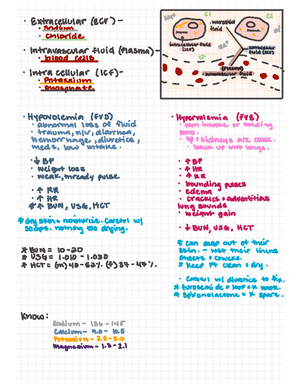 · Extracellular (ECF) -
· Sodium
· Chloride
· Intravascular fluid (Plasma) -
· blood cells
· Intra cellular (ICF) -
· Potassium
· Phosphate
Interstitial fluid
Intracellular fluid (ICF)
Extracellular fluid (ECF)
Plasma
· Hypovolemia (FVD)
· abnormal loss of fluid
· trauma, n/v, diarrhea,
hemorrhage, diuretics,
meds, low intake.
· ↓ BP
· weight loss
· weak, thready pulse
· ↑ RR
· ↑ HR
* ↑ BUN, USG, HCT
* dry skin = moisturize. Careful w/
soaps. nothing too drying.
* BUN = 10-20
* USG = 1.010 - 1.030
* HCT = (m) 42-52% (f) 37-47%
· Hypervolemia (FVE)
· kidneys are
back up into lungs.
· ↑ BP
· ↑ HR
· ↑ RR
· bounding pulses
· edema
· crackles + adventitious
lung sounds
· weight gain
· ↓ BUN, USG, HCT
* Can seep out of their
skin. - wet their linens
sheets + chucks.
* Keep PT clean + dry.
· Careful w/ diuretics to fix.
* furosemide = loop = K wask.
* Spironolactone = K spare.
Know:
Sodium - 136 - 145
Calcium - 9.0 - 10.5
Potassium - 3.5 - 5.0
Magnesium - 1.3 - 2.1